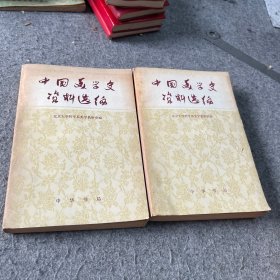 中国美学史
资料选编
北京大学哲学系美学教研室编
中华书局
中国美学史
资料选编
北京大学哲学系美学教研室编
中华书局